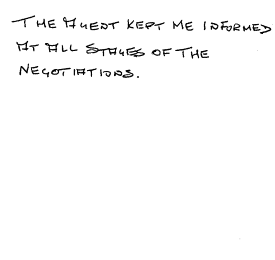 THE AGENT KEPT ME INFORMED
AT ALL STAGES OF THE
NEGOTIATIONS.